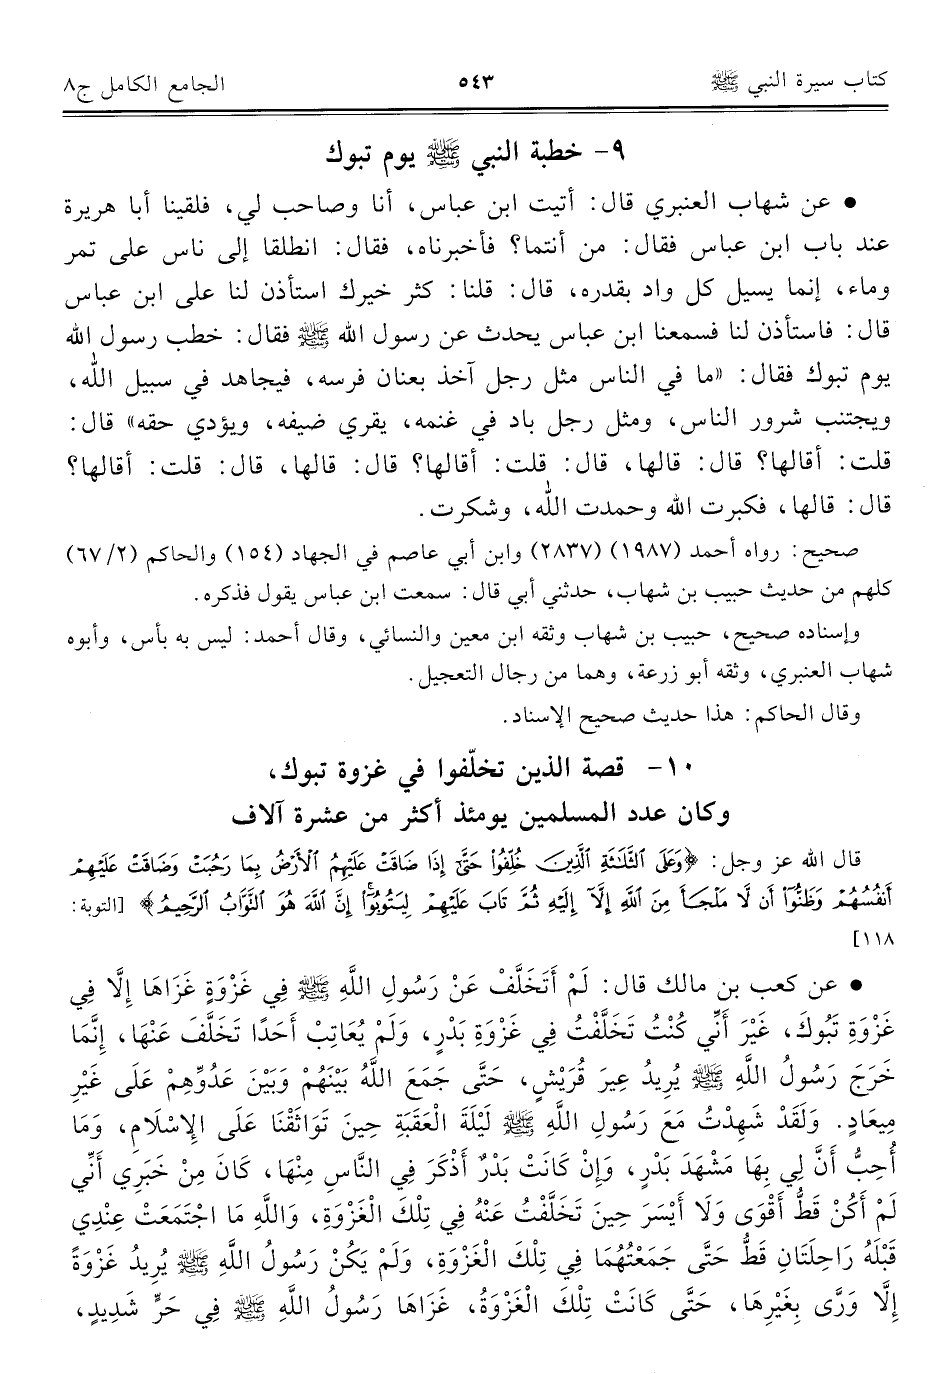 كتاب سيرة النبي ﷺ ٥٤٣ الجامع الكامل ج٨
٩- خطبة النبي ﷺ يوم تبوك
• عن شهاب العنبري قال: أتيت ابن عباس، أنا وصاحب لي، فلقينا أبا هريرة
عند باب ابن عباس فقال: من أنتما؟ فأخبرناه، فقال: انطلقا إلى ناس على تمر
وماء، إنما يسيل كل واد بقدره، قال: قلنا: كثر خيرك استأذن لنا على ابن عباس
قال: فاستأذن لنا فسمعنا ابن عباس يحدث عن رسول الله ﷺ فقال: خطب رسول الله
يوم تبوك فقال: «ما في الناس مثل رجل آخذ بعنان فرسه، فيجاهد في سبيل الله،
ويجتنب شرور الناس، ومثل رجل باد في غنمه، يقري ضيفه، ويؤدي حقه» قال:
قلت: أقالها؟ قال: قالها، قال: قلت: أقالها؟ قال: قالها، قال: قلت: أقالها؟
قال: قالها، فكبرت الله وحمدت الله، وشكرت.
صحيح: رواه أحمد (١٩٨٧) (٢٨٣٧) وابن أبي عاصم في الجهاد (١٥٤) والحاكم (٦٧/٢)
كلهم من حديث حبيب بن شهاب، حدثني أبي قال: سمعت ابن عباس يقول فذكره.
وإسناده صحيح، حبيب بن شهاب وثقه ابن معين والنسائي، وقال أحمد: ليس به بأس، وأبوه
شهاب العنبري، وثقه أبو زرعة، وهما من رجال التعجيل.
وقال الحاكم: هذا حديث صحيح الإسناد.
١٠- قصة الذين تخلّفوا في غزوة تبوك،
وكان عدد المسلمين يومئذ أكثر من عشرة آلاف
قال الله عز وجل: ﴿وَعَلَى ٱلثَّلَـٰثَةِ ٱلَّذِينَ خُلِّفُوا۟ حَتَّىٰٓ إِذَا ضَاقَتْ عَلَيْهِمُ ٱلْأَرْضُ بِمَا رَحُبَتْ وَضَاقَتْ عَلَيْهِمْ
أَنفُسُهُمْ وَظَنُّوٓا۟ أَن لَّا مَلْجَأَ مِنَ ٱللَّهِ إِلَّآ إِلَيْهِ ثُمَّ تَابَ عَلَيْهِمْ لِيَتُوبُوٓا۟ ۚ إِنَّ ٱللَّهَ هُوَ ٱلتَّوَّابُ ٱلرَّحِيمُ﴾ [التوبة:
١١٨]
• عن كعب بن مالك قال: لَمْ أَتَخَلَّفْ عَنْ رَسُولِ اللَّهِ ﷺ فِي غَزْوَةٍ غَزَاهَا إِلَّا فِي
غَزْوَةِ تَبُوكَ، غَيْرَ أَنِّي كُنْتُ تَخَلَّفْتُ فِي غَزْوَةِ بَدْرٍ، وَلَمْ يُعَاتِبْ أَحَدًا تَخَلَّفَ عَنْهَا، إِنَّمَا
خَرَجَ رَسُولُ اللَّهِ ﷺ يُرِيدُ عِيرَ قُرَيْشٍ، حَتَّى جَمَعَ اللَّهُ بَيْنَهُمْ وَبَيْنَ عَدُوِّهِمْ عَلَى غَيْرِ
مِيعَادٍ. وَلَقَدْ شَهِدْتُ مَعَ رَسُولِ اللَّهِ ﷺ لَيْلَةَ الْعَقَبَةِ حِينَ تَوَاثَقْنَا عَلَى الإِسْلَامِ، وَمَا
أُحِبُّ أَنَّ لِي بِهَا مَشْهَدَ بَدْرٍ، وَإِنْ كَانَتْ بَدْرٌ أَذْكَرَ فِي النَّاسِ مِنْهَا، كَانَ مِنْ خَبَرِي أَنِّي
لَمْ أَكُنْ قَطُّ أَقْوَى وَلَا أَيْسَرَ حِينَ تَخَلَّفْتُ عَنْهُ فِي تِلْكَ الْغَزْوَةِ، وَاللَّهِ مَا اجْتَمَعَتْ عِنْدِي
قَبْلَهُ رَاحِلَتَانِ قَطُّ حَتَّى جَمَعْتُهُمَا فِي تِلْكَ الْغَزْوَةِ، وَلَمْ يَكُنْ رَسُولُ اللَّهِ ﷺ يُرِيدُ غَزْوَةً
إِلَّا وَرَّى بِغَيْرِهَا، حَتَّى كَانَتْ تِلْكَ الْغَزْوَةُ، غَزَاهَا رَسُولُ اللَّهِ ﷺ فِي حَرٍّ شَدِيدٍ،